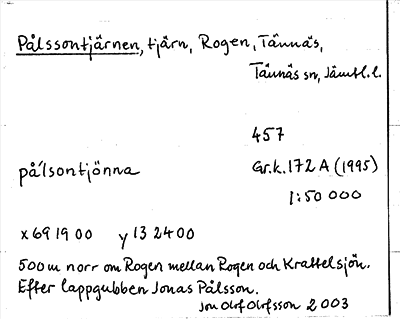 Pålssontjärnen, tjärn, Rogen, Tännäs,
Tännäs sn, Jämtl.l.
457
på'lsontjönna
Gr.k.172 A (1995)
1:50 000
x 69 19 00 y 13 24 00
500 m norr om Rogen mellan Rogen och Krattelsjön.
Efter lappgubben Jonas Pålsson.
Jon Olof Olofsson 2003